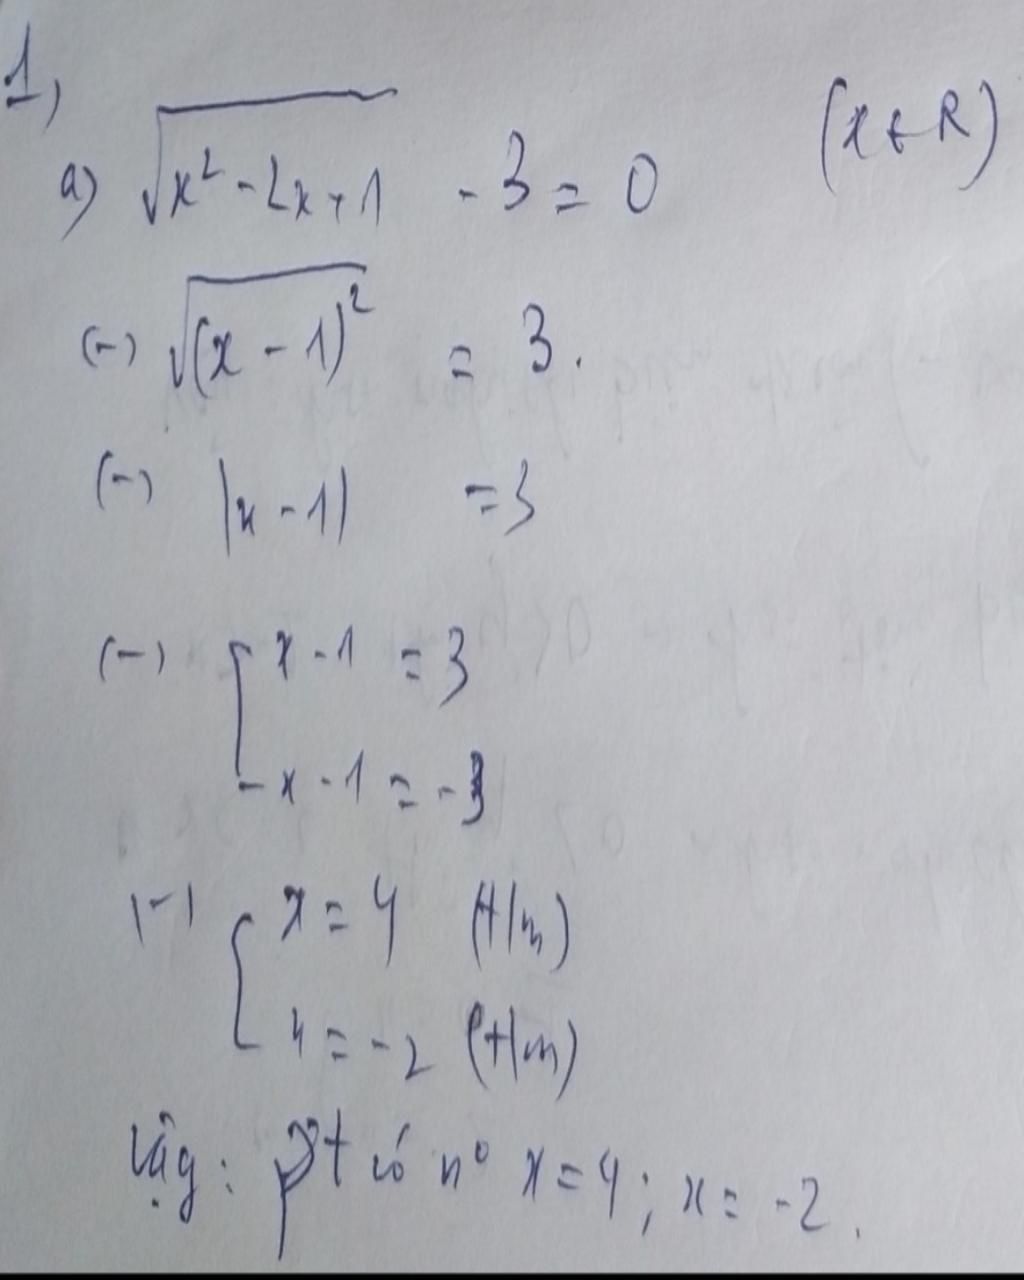 1,
a) √(x² - 2x + 1) - 3 = 0 (x ∈ R)
(-) √((x - 1)²) = 3.
(-) |x - 1| = 3
(-) [ x - 1 = 3
x - 1 = -3
(-) [ x = 4 (t/m)
x = -2 (t/m)
Vậy: pt có n° x = 4 ; x = -2.